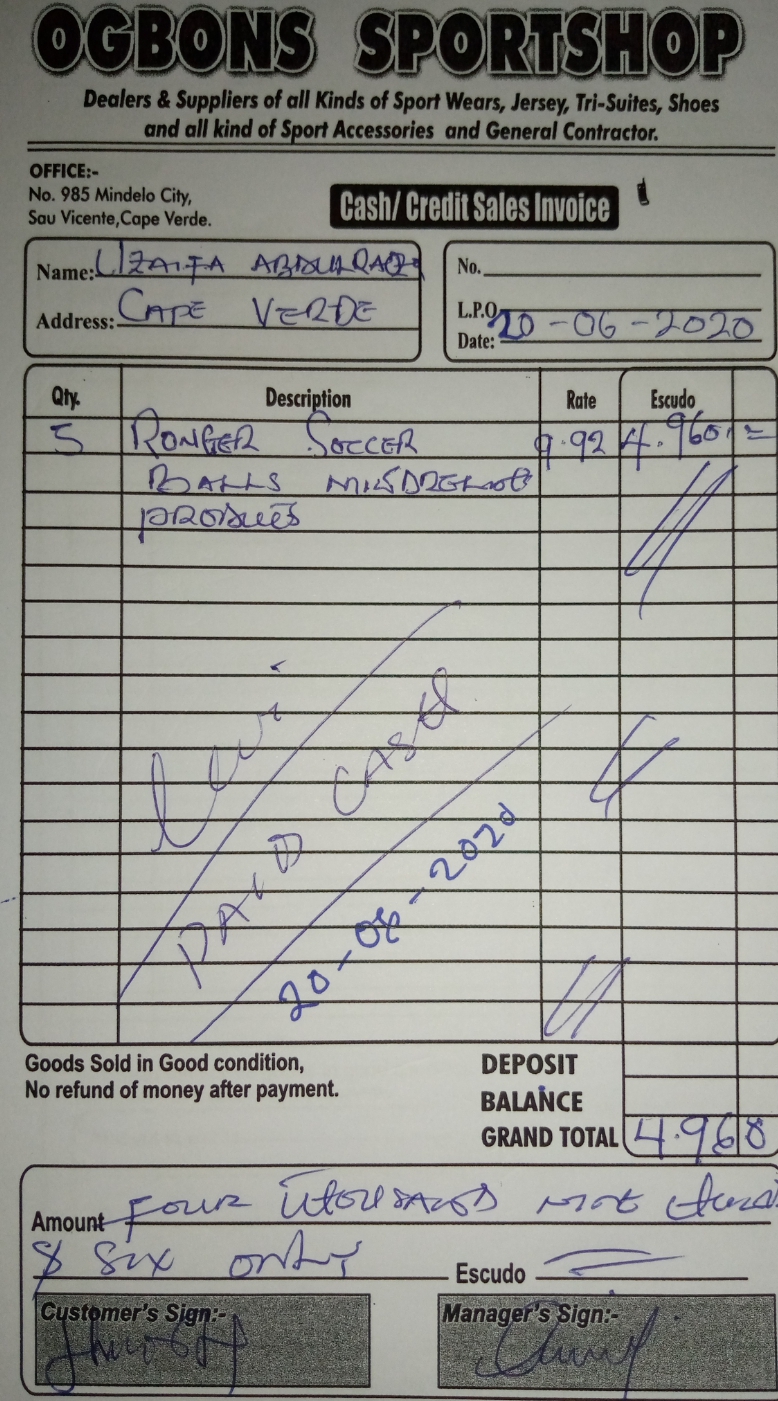 OGBONS SPORTSHOP
Dealers & Suppliers of all Kinds of Sport Wears, Jersey, Tri-Suites, Shoes
and all kind of Sport Accessories and General Contractor.
OFFICE:-
No. 985 Mindelo City,
Sau Vicente,Cape Verde.
Cash/ Credit Sales Invoice
Name:
Address: CAPE VERDE
No.
L.P.O.
Date: 20-06-2020
Qty. Description Rate Escudo
5 RONGER SOCCER 9.92 4.960
BALLS
PAID CASH
20-06-2020
Goods Sold in Good condition,
No refund of money after payment.
DEPOSIT
BALANCE
GRAND TOTAL 4.960
Amount FOUR THOUSAND NINE
& SIX ONLY Escudo
Customer's Sign:- Manager's Sign:-